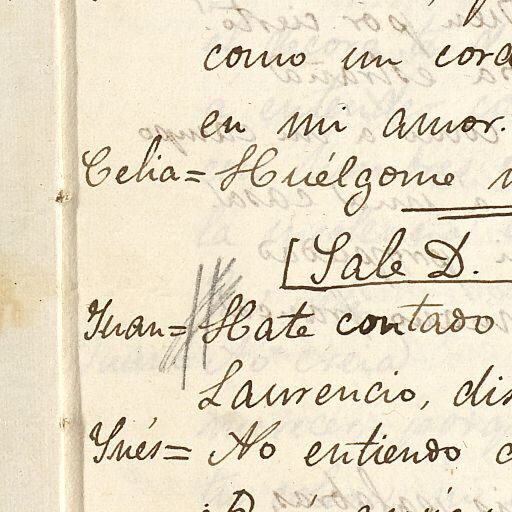 como un cora
en mi amor.
Celia = Huélgome
[Sale D.
Juan = Hate contado
Laurencio, dis
Ynés = No entiendo